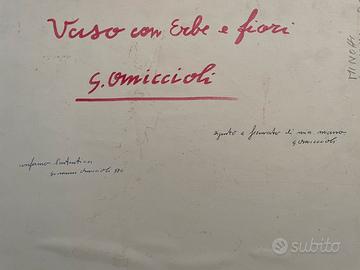 Vaso con Erbe e fiori
G. Omiccioli
dipinto e firmato di mia mano
G Omiccioli
confermo l'autentica
Giovanni Omiccioli
subito